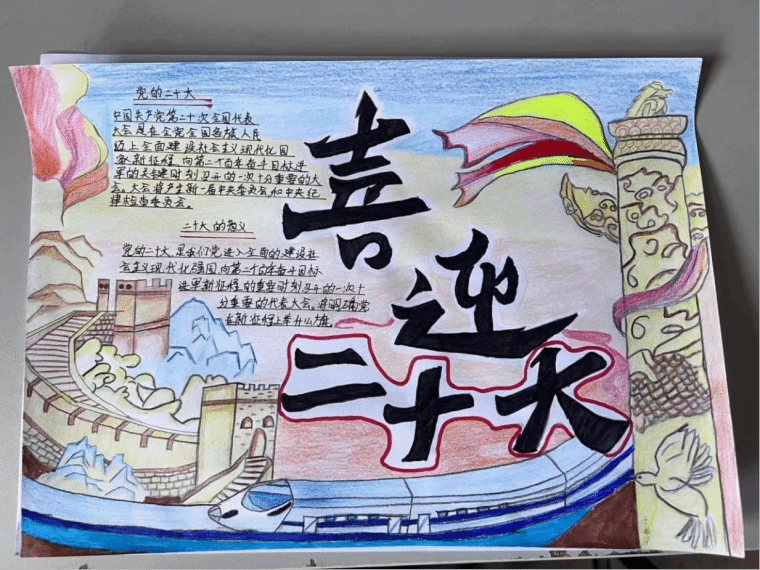 党的二十大
中国共产党第二十次全国代表
大会是在全党全国各族人民
迈上全面建设社会主义现代化国
家新征程,向第二个百年奋斗目标进
军的关键时刻召开的一次十分重要的大
会。大会将产生新一届中央委员会和中央纪
律检查委员会。
二十大的意义
党的二十大,是我们党进入全面的建设社
会主义现代化强国,向第二个百年奋斗目标
进军新征程的重要时刻召开的一次十
分重要的代表大会。将明确党
在新征程上举什么旗。
喜
迎
二十大